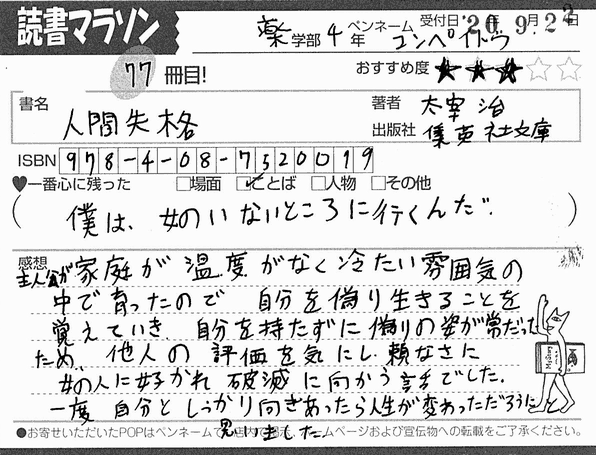 読書マラソン
薬学部4年 ペンネーム コンペイトウ 受付日 '20年 9月22日
77冊目! おすすめ度 ★★★☆☆
書名 人間失格 著者 太宰治
出版社 集英社文庫
ISBN 978-4-08-7520019
♥一番心に残った □場面 ☑ことば □人物 □その他
(僕は、女のいないところに行くんだ。)
感想
主人公が家庭が温度がなく冷たい雰囲気の
中で育ったので 自分を偽り生きることを
覚えていき、自分を持たずに偽りの姿が常だった
ため、他人の評価を気にし頼なさに
女の人に好かれ破滅に向かう話でした。
一度 自分としっかり向きあったら人生が変わっただろうにと
思いました
●お寄せいただいたPOPはペンネームで店内で
ームページおよび宣伝物への転載をご了承ください。